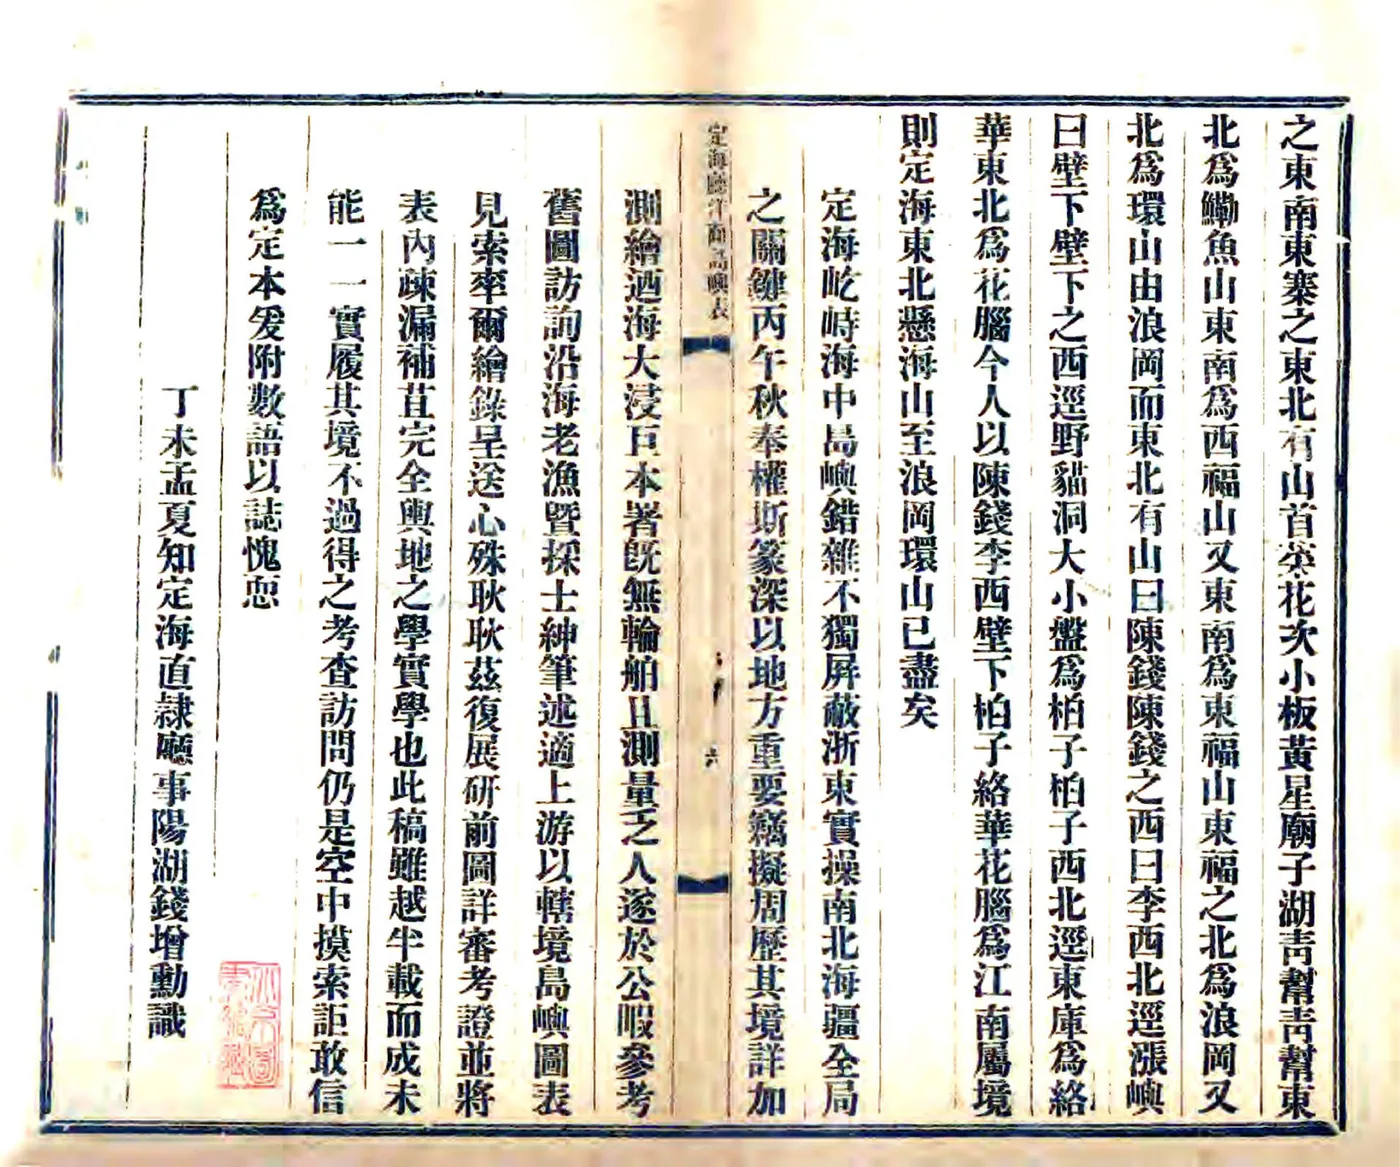 之東南東寨之東北有山首尖花次小板黃星廟子湖靑幫靑幫東
北爲鰳魚山東南爲西福山又東南爲東福山東福之北爲浪岡又
北爲環山由浪岡而東北有山曰陳錢陳錢之西曰李西北逕漲嶼
曰壁下壁下之西逕野貓洞大小盤爲柏子柏子西北逕東庫爲絡
華東北爲花腦今人以陳錢李西壁下柏子絡華花腦爲江南屬境
則定海東北懸海山至浪岡環山已盡矣
定海屹峙海中島嶼錯雜不獨屏蔽浙東實操南北海疆全局
之關鍵丙午秋奉權斯篆深以地方重要竊擬周歷其境詳加
定海廳洋面島嶼表
六
測繪迺海大浸巨本署旣無輪舶且測量乏人遂於公暇參考
舊圖訪詢沿海老漁曁採士紳筆述適上游以轄境島嶼圖表
見索率爾繪錄呈送心殊耿耿茲復展硏前圖詳審考證並將
表內疎漏補苴完全輿地之學實學也此稿雖越半載而成未
能一一實履其境不過得之考查訪問仍是空中摸索詎敢信
爲定本爰附數語以誌愧恧
丁未孟夏知定海直隷廳事陽湖錢增勳識